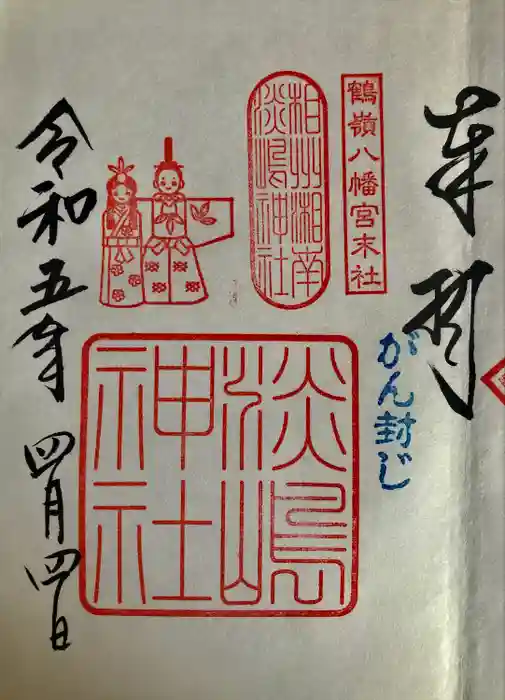 奉拝
鶴嶺八幡宮末社
がん封じ
相州湘南
淡嶋神社
淡嶋
神社
令和五年四月四日